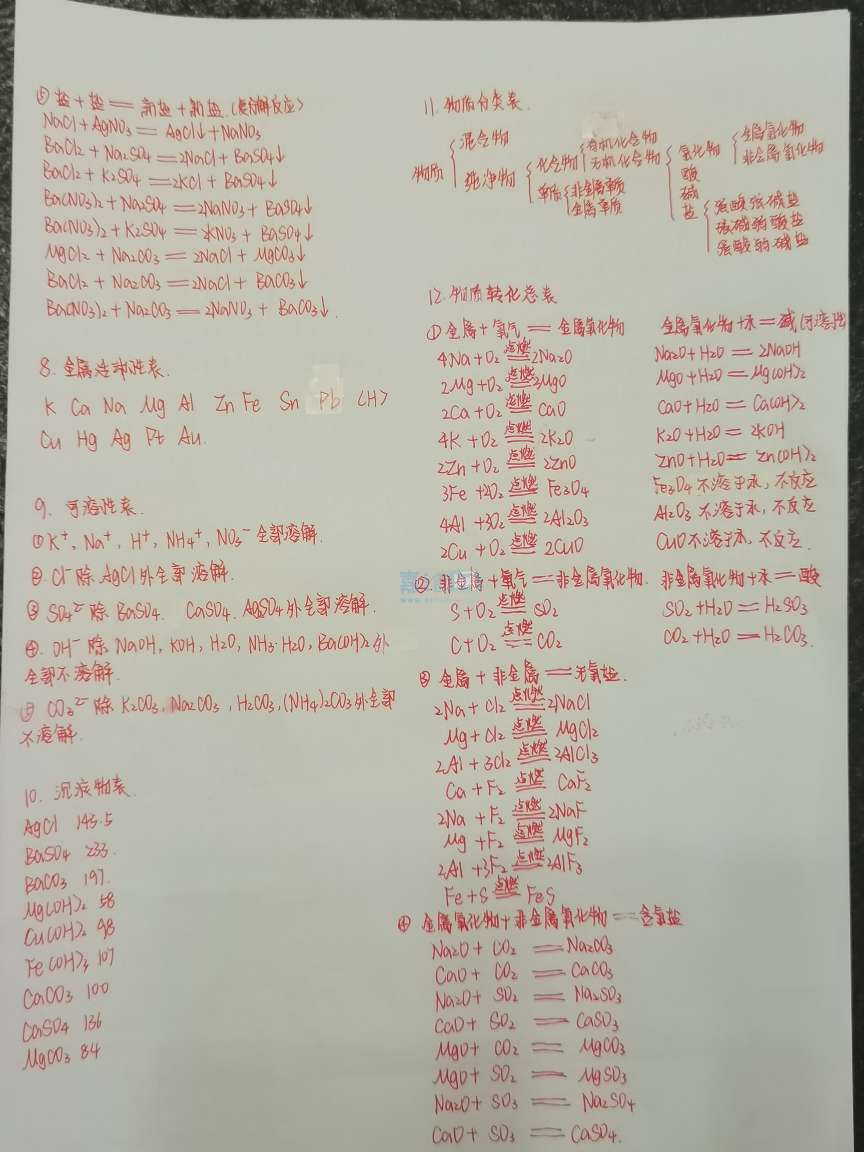 ⑤ 盐+盐══新盐+新盐.(复分解反应)
NaCl+AgNO₃══AgCl↓+NaNO₃
BaCl₂+Na₂SO₄══2NaCl+BaSO₄↓
BaCl₂+K₂SO₄══2KCl+BaSO₄↓
Ba(NO₃)₂+Na₂SO₄══2NaNO₃+BaSO₄↓
Ba(NO₃)₂+K₂SO₄══2KNO₃+BaSO₄↓
MgCl₂+Na₂CO₃══2NaCl+MgCO₃↓
BaCl₂+Na₂CO₃══2NaCl+BaCO₃↓
Ba(NO₃)₂+Na₂CO₃══2NaNO₃+BaCO₃↓.
8. 金属活动性表.
K Ca Na Mg Al Zn Fe Sn Pb (H)
Cu Hg Ag Pt Au.
9. 可溶性表.
①K⁺, Na⁺, H⁺, NH₄⁺, NO₃⁻全部溶解.
②Cl⁻除AgCl外全部溶解.
③SO₄²⁻除BaSO₄. CaSO₄. AgSO₄外全部溶解.
④. OH⁻除NaOH, KOH, H₂O, NH₃·H₂O, Ba(OH)₂外
全部不溶解.
⑤ CO₃²⁻除K₂CO₃, Na₂CO₃, H₂CO₃, (NH₄)₂CO₃外全部
不溶解.
10. 沉淀物表.
AgCl 143.5
BaSO₄ 233.
BaCO₃ 197.
Mg(OH)₂ 58
Cu(OH)₂ 98
Fe(OH)₃ 107
CaCO₃ 100
CaSO₄ 136
MgCO₃ 84
11. 物质分类表.
物质
混合物
纯净物
化合物
单质
有机化合物
无机化合物
非金属单质
金属单质
氧化物
酸
碱
盐
金属氧化物
非金属氧化物
强酸强碱盐
强碱弱酸盐
强酸弱碱盐
12. 物质转化总表
①金属+氧气══金属氧化物 金属氧化物+水═碱(可溶性
4Na+O₂ 点燃══ 2Na₂O Na₂O+H₂O══2NaOH
2Mg+O₂ 点燃══ 2MgO MgO+H₂O══Mg(OH)₂
2Ca+O₂ 点燃══ CaO CaO+H₂O══Ca(OH)₂
4K+O₂ 点燃══ 2K₂O K₂O+H₂O══2KOH
2Zn+O₂ 点燃══ 2ZnO ZnO+H₂O══Zn(OH)₂
3Fe+2O₂ 点燃══ Fe₃O₄ Fe₃O₄不溶于水,不反应
4Al+3O₂ 点燃══ 2Al₂O₃ Al₂O₃不溶于水,不反应
2Cu+O₂ 点燃══ 2CuO CuO不溶于水,不反应.
②. 非金属+氧气══非金属氧化物. 非金属氧化物+水══酸
S+O₂ 点燃══ SO₂ SO₂+H₂O══H₂SO₃
C+O₂ 点燃══ CO₂ CO₂+H₂O══H₂CO₃.
③ 金属+非金属══无氧盐.
2Na+Cl₂ 点燃══ 2NaCl
Mg+Cl₂ 点燃══ MgCl₂
2Al+3Cl₂ 点燃══ 2AlCl₃
Ca+F₂ 点燃══ CaF₂
2Na+F₂ 点燃══ 2NaF
Mg+F₂ 点燃══ MgF₂
2Al+3F₂ 点燃══ 2AlF₃
Fe+S 点燃══ FeS
④ 金属氧化物+非金属氧化物══含氧盐
Na₂O+CO₂══Na₂CO₃
CaO+CO₂══CaCO₃
Na₂O+SO₂══Na₂SO₃
CaO+SO₂══CaSO₃
MgO+CO₂══MgCO₃
MgO+SO₂══MgSO₃
Na₂O+SO₃══Na₂SO₄
CaO+SO₃══CaSO₄.